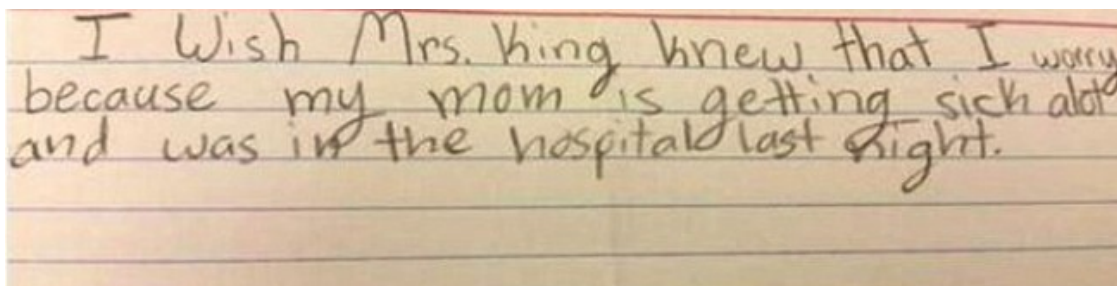 I Wish Mrs. King knew that I worry
because my mom is getting sick alot
and was in the hospital last night.